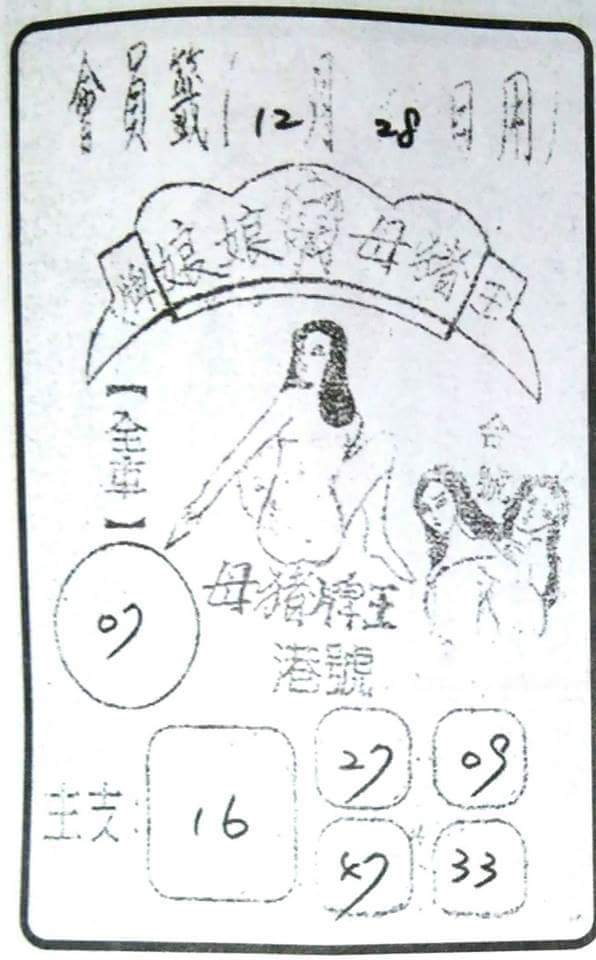 會員籤(12月28日用)
牌娘娘窩母豬王
【全車】
台號
07
母豬牌王
港號
27 09
主支: 16
47 33